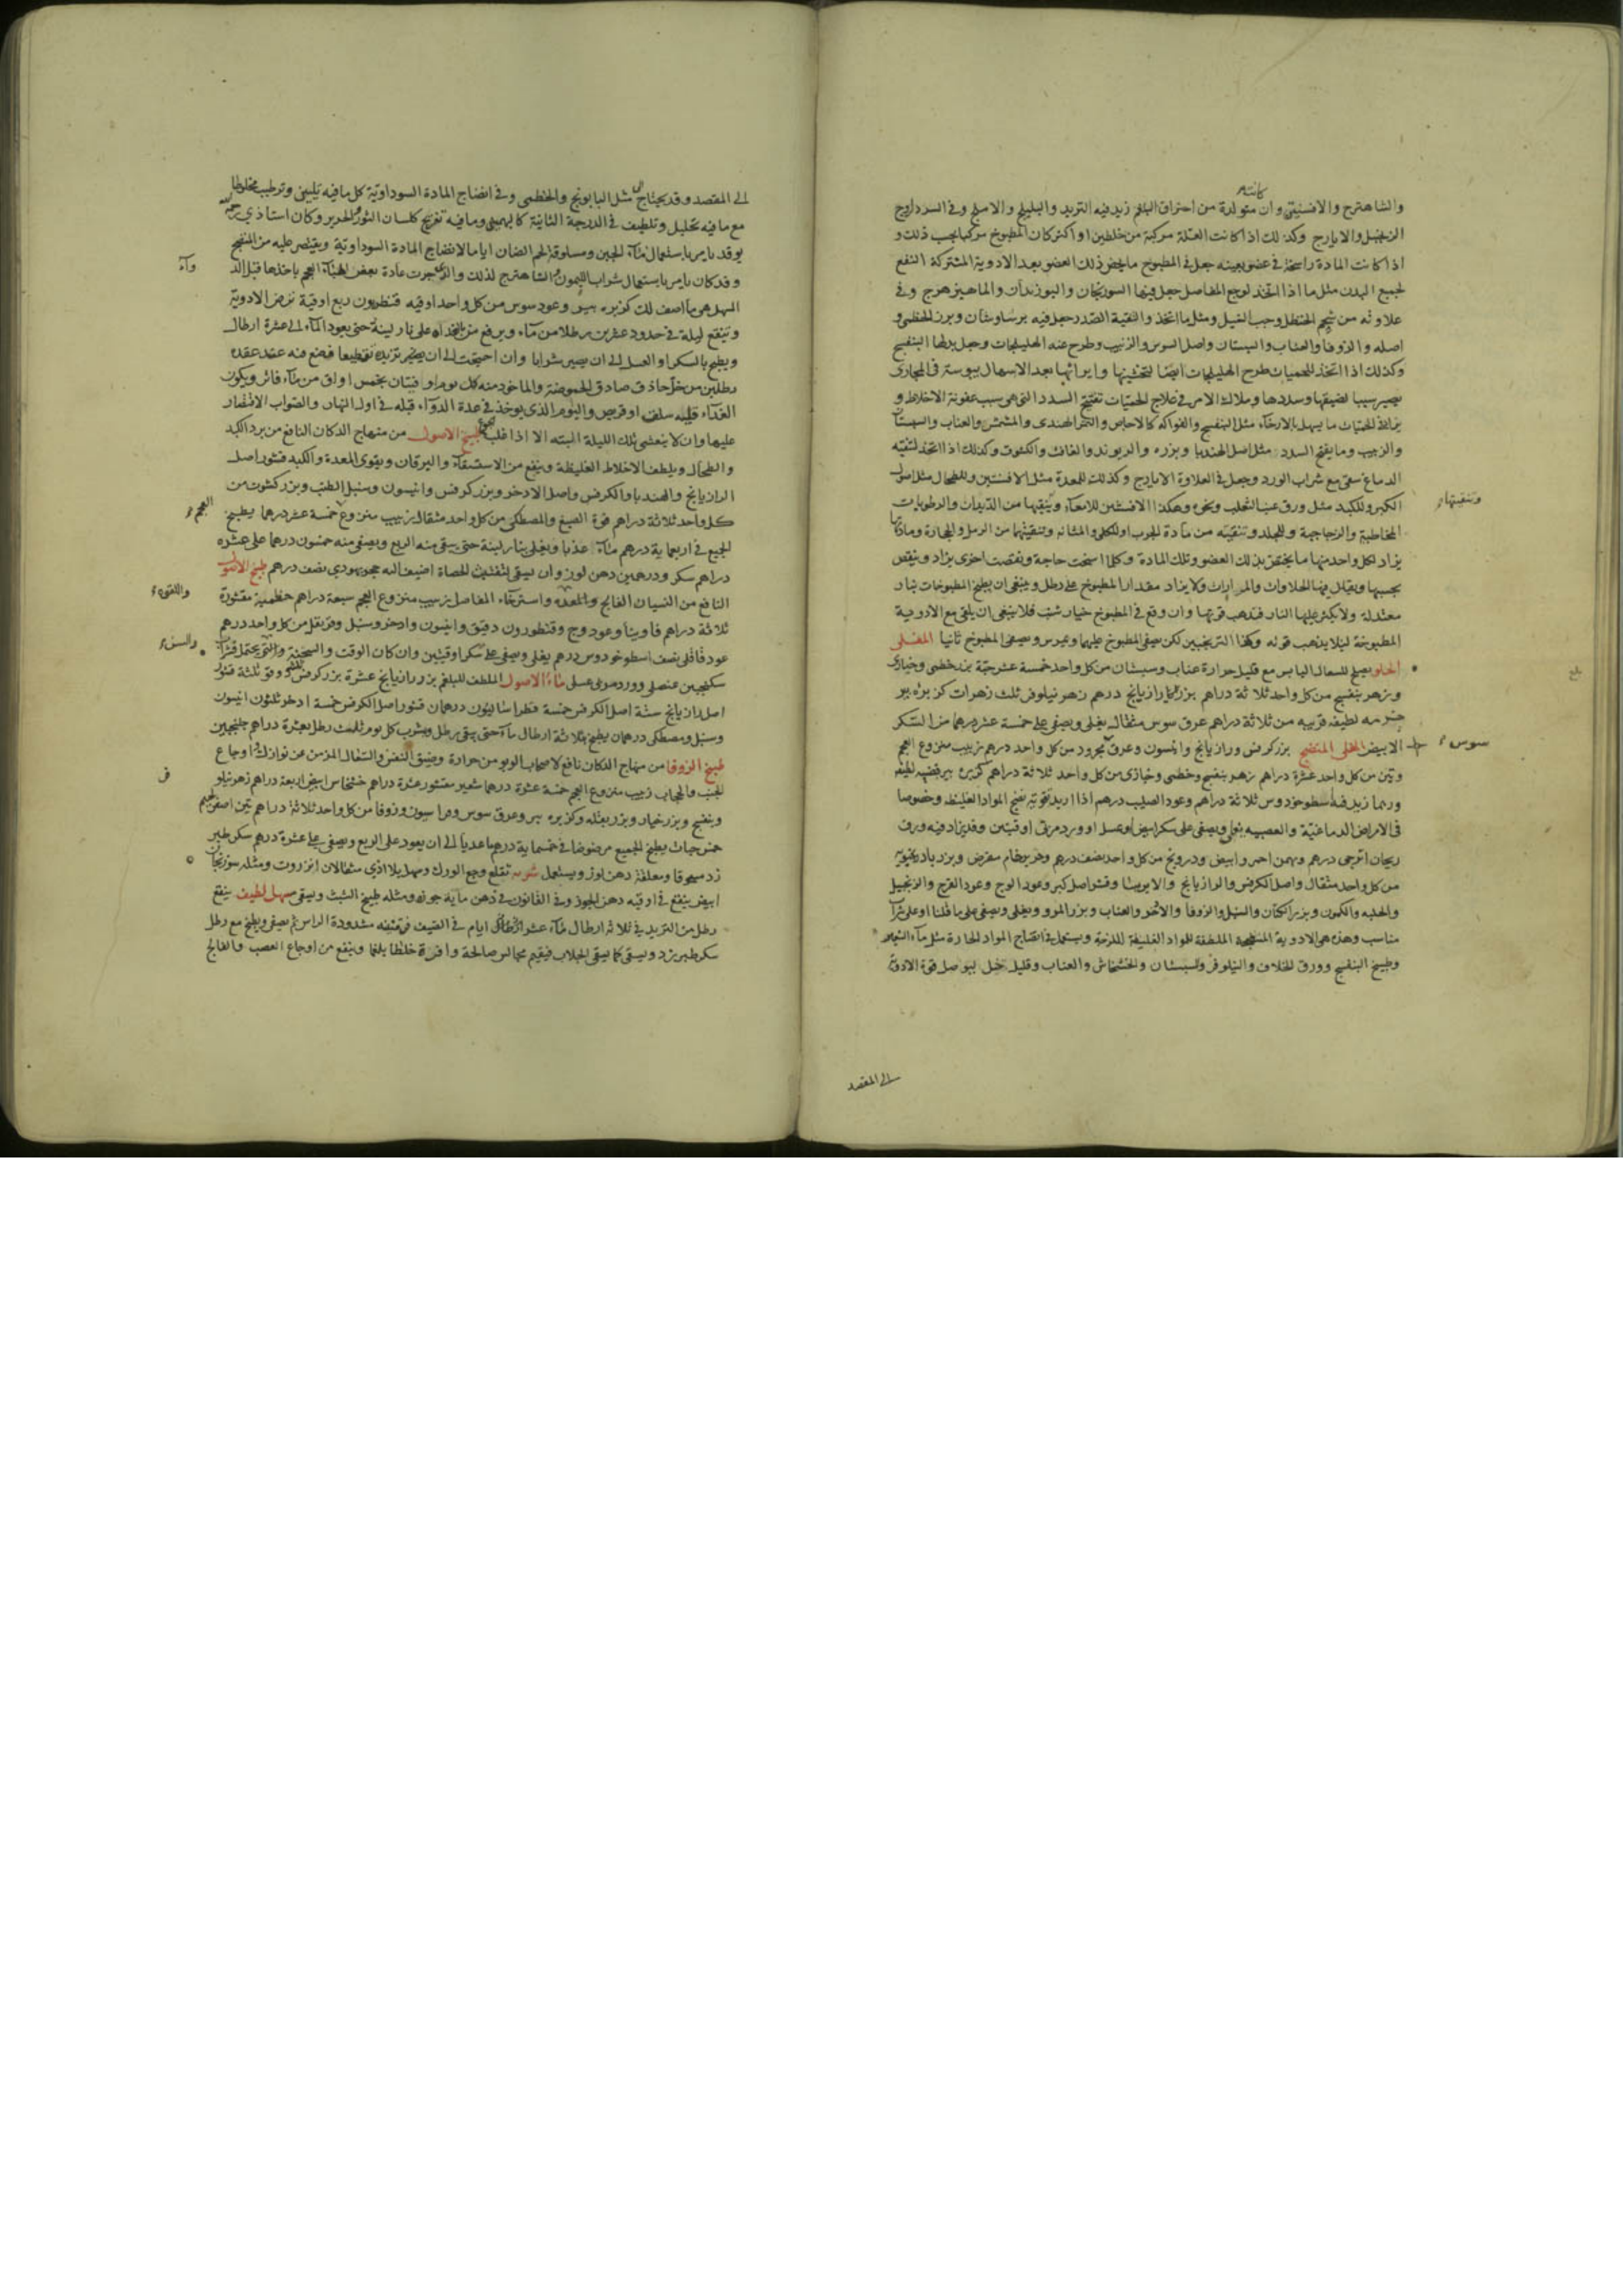 كانت
والشاهترج والافسنتين وان متولدة من احتراق البلغم زيد فيه التربد والبليلج والاملج وفي السدد اوج
الزنجبيل والايارج وكذلك اذا كانت العلة مركبة من خلطين او اكثر كان المطبوخ مركبا بحسب ذلك و
اذا كانت المادة راسخة في عضو بعينه جعل في المطبوخ ما يخص ذلك العضو بعد الادوية المشتركة النفع
لجميع البدن مثل ما اذا اتخذ لوجع المفاصل جعل فيها السورنجان والبوزيدان والماهيزهرج وفي
علاوته من شحم الحنظل وحب النيل ومثل ما اتخذ والتنقية الصدر جعل فيه برسياوشان وبزر الخطمى و
اصله والزوفا والعناب والسبستان واصل السوس والزبيب وطرح عنه الهليلجات وجعل بدلها البنفسج
وكذلك اذا اتخذ للحميات طرح الهليلجات ايضا لتخشينها وايراثها بعد الاسهال يبوسة في المجارى
يصير سببا لضيقها وسددها وملاك الامر في علاج الحميات تفتيح السدد التى هى سبب عفونة الاخلاط و
الحميات ما يسهل بالارخاء مثل البنفسج والفواكه كالاجاص والتمر الهندى والمشمش والعناب والسبستان
والزبيب وما يفتح السدد مثل اصل الهندبا وبزره والريوند والغافث والكشوث وكذلك اذا اتخذ لتنقية
الدماغ سقى مع شراب الورد وجعل في العلاوة الايارج وكذلك للمعدة مثل الافسنتين وللطحال مثل اصول
الكبر وللكبد مثل ورق عنب الثعلب ونحوه وهكذا الافسنتين للامعاء وينقيها من الديدان والرطوبات
وتنقيتها
المخاطية والزجاجية وللجلد وتنقيته من مادة الجرب او للكلى والمثانه وتنقيتها من الرمل والحجارة وماد
يزاد لكل واحد منها ما يختص بذلك العضو وتلك المادة وكلما اسنحت حاجة ونقصت اخرى يزاد وينقص
بحسبها ويقلل فيها الحلاوات والمرارات ولا يزاد مقدار المطبوخ على رطل وينبغى ان يطبخ المطبوخات بنار
معتدلة ولا يكثر عليها النار فيذهب قوتها وان وقع في المطبوخ خيار شنبر فلا ينبغى ان يلقى مع الادوية
المطبوخة ليلا يذهب قوته وهكذا الترنجبين لكن يصفى المطبوخ عليهما ويمرس ويصفى المطبوخ ثانيا المغلى
الحلو يصلح للسعال اليابس مع قليل حرارة عناب وسبستان من كل واحد خمسة عشر حبة بزر خطمى وخبازى
وزهر بنفسج من كل واحد ثلاثة دراهم بزر رازيانج درهم زهر نيلوفر ثلث زهرات كزبرة بير
لطيفه قريبه من ثلاثة دراهم عرق سوس مثقال يغلى ويصفى على خمسة عشر درهما من السكر
سوس
الابيض المغلى المنضج بزر كرفس ورازيانج وانيسون وعرق مجرود من كل واحد درهم زبيب منزوع العجم
وتين من كل واحد عشرة دراهم زهر بنفسج وخطمى وخبازى من كل واحد ثلاثة دراهم كزبرة بير قبضه لطيفه
وربما زيد فيه اسطوخودوس ثلاثة دراهم وعود الصليب درهم اذا اريد تقويته نضج المواد الغليظه وخصوصا
في الامراض الدماغية والعصبيه يغلى ويصفى على سكر ابيض او عسل او ورد مربى اوقيتين وقد يزاد فيه ورق
ريحان اترجى درهم وبهمن احمر وابيض ودرونج من كل واحد نصف درهم وحرير خام مقرض وبزر بادرنجبويه
من كل واحد مثقال واصل الكرفس والرازيانج والايرسا وقشر اصل كبر وعود الوج وعود القرح والزنجبيل
والحلبه والكمون وبزر الكتان والسنبل والزوفا والاذخر والعناب وبزر المرو ويغلى ويصفى على ما قلنا او على شراب
مناسب وهذه هى الادوية المنضجة الملطفة للمواد الغليظة اللزجة ويستعمل في انضاج المواد الحارة مثل ماء الشعير
وطبيخ البنفسج وورق الخلاف والنيلوفر والسبستان والخشخاش والعناب وقليل خل ليوصل قوة الادوية
الى المقصد
الى المقصد وقد يحتاج الى مثل البابونج والخطمى وفي انضاج المادة السوداوية كل ما فيه تليين وترطيب مخلوطا
مع ما فيه تحليل وتلطيف في الدرجة الثانية كالبهمنين وما فيه تفريح كلسان الثور والحرير وكان استاذي رحمه الله
يامر باستعمال ماء الجبن ومسلوقة لحم الضان اياما لانضاج المادة السوداوية ويقتصر عليه من المنضج
وقد كان يامر باستعمال شراب الليمون والشاهترج لذلك والذى جرت عادة بعض اطباء العجم باخذها قبل الد
واء
المسهل هى ما اصف لك كزبره بير وعود سوس من كل واحد اوقيه قنطريون ربع اوقية ترض الادوية
وتنقع ليلة في حدود عشرين رطلا من ماء ويرفع من الغداة على نار لينة حتى يعود الماء الى عشرة ارطال
ويطبخ بالسكر او العسل الى ان يصير شرابا وان احتجت الى ان يصير تزيده تقطيعا فضع فيه عند عقده
رطلين من خل حاذق صادق الحموضة والماخوذ منه كل يوم اوقيتان بخمس اواق من ماء فاتر ويكون
الغداء قليه سلق او قريص واليوم الذى يوخذ في غدة الدواء قبله في اول النهار والصواب الاقتصار
عليها وان لا يتعشى تلك الليلة البته الا اذا غلب الجوع طبيخ الاصول من منهاج الدكان النافع من برد الكبد
والطحال ويلطف الاخلاط الغليظة وينفع من الاستسقاء واليرقان ويقوى المعدة والكبد قشور اصل
الرازيانج والهندبا والكرفس واصل الاذخر وبزر كرفس وانيسون وسنبل الطيب وبزر كشوث من
كل واحد ثلاثة دراهم فوة الصبغ والمصطكى من كل واحد مثقال زبيب منزوع خمسة عشر درهما يطبخ
العجم
الجميع في اربعماية درهم ماء عذبا ويغلى بنار لينة حتى يبقى منه الربع ويصفى منه خمسون درهما على عشره
دراهم سكر ودرهمين دهن لوز وان سقى لتفتيت الحصاة اضيف اليه حجر يهودى نصف درهم طبيخ الاصول
النافع من النسيان الفالج والمعده واسترخاء المفاصل زبيب منزوع العجم سبعة دراهم حنطمية مقشورة
واللقوة
ثلاثة دراهم فاوينا وعود وج وقنطوريون دقيق وانيسون واذخر وسنبل وقرنفل من كل واحد درهم
عود قاقلى نصف اسطوخودوس درهم يغلى ويصفى على سكر اوقيتين وان كان الوقت والسحنة والقوى يحتمل
والسن
سكنجبين عنصلى وورد مربى عسلى ماء الاصول الملطف للبلغم بزر رازيانج عشرة بزر كرفس وفو ثلثة قشور
اصل رازيانج ستة اصل الكرفس خمسة فطراساليون درهمان قشور اصل الكرفس خمسة اذخر ثلثون انيسون
وسنبل ومصطكى درهمان يطبخ بثلاثة ارطال ماء حتى يبقى رطل ويشرب كل يوم ثلث رطل بعشرة دراهم جلنجبين
طبيخ الزوفا من منهاج الدكان نافع لاصحاب الربو من حرارة وضيق النفس والسعال المزمن عن نوازل واوجاع
الجنب والحجاب زبيب منزوع العجم خمسة عشرة درهما شعير مقشور عشرة دراهم خشخاش ابيض اربعة دراهم زهر نيلو
فر
وبنفسج وبزر خيار وبزر بقله وكزبره بير وعرق سوس وفراسيون وزوفا من كل واحد ثلاثة دراهم تين اصفر لحيم
خمس حبات يطبخ الجميع مرضوضا في خمسماية درهم ماء عذبا الى ان يعود على الربع ويصفى على عشرة درهم سكر طبر
زد مسحوقا وملعقة دهن لوز ويستعمل شربه تقلع وجع الورك وسهل بلا اذى مثقالان انزروت ومثله سورنجان
ابيض ينقع في اوقيه دهن الجوز وفي القانون في دهن ماية جوزه ومثله طبيخ الشبث ويسقى مسهل لطيف ينقع
رطل من التربد في ثلاثة ارطال ماء عشر ايام في الصيف في قنينه مشدودة الراس ثم يصفى ويطبخ مع رطل
سكر طبرزد ويسقى كما يسقى الجلاب فيقيم مجالس صالحة وافرة خلطا بلغما وينفع من اوجاع العصب والفالج